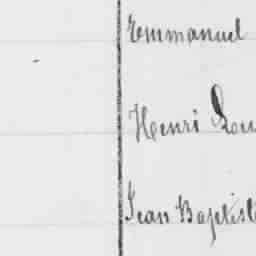 Emmanuel
Henri Lou
Jean Baptist